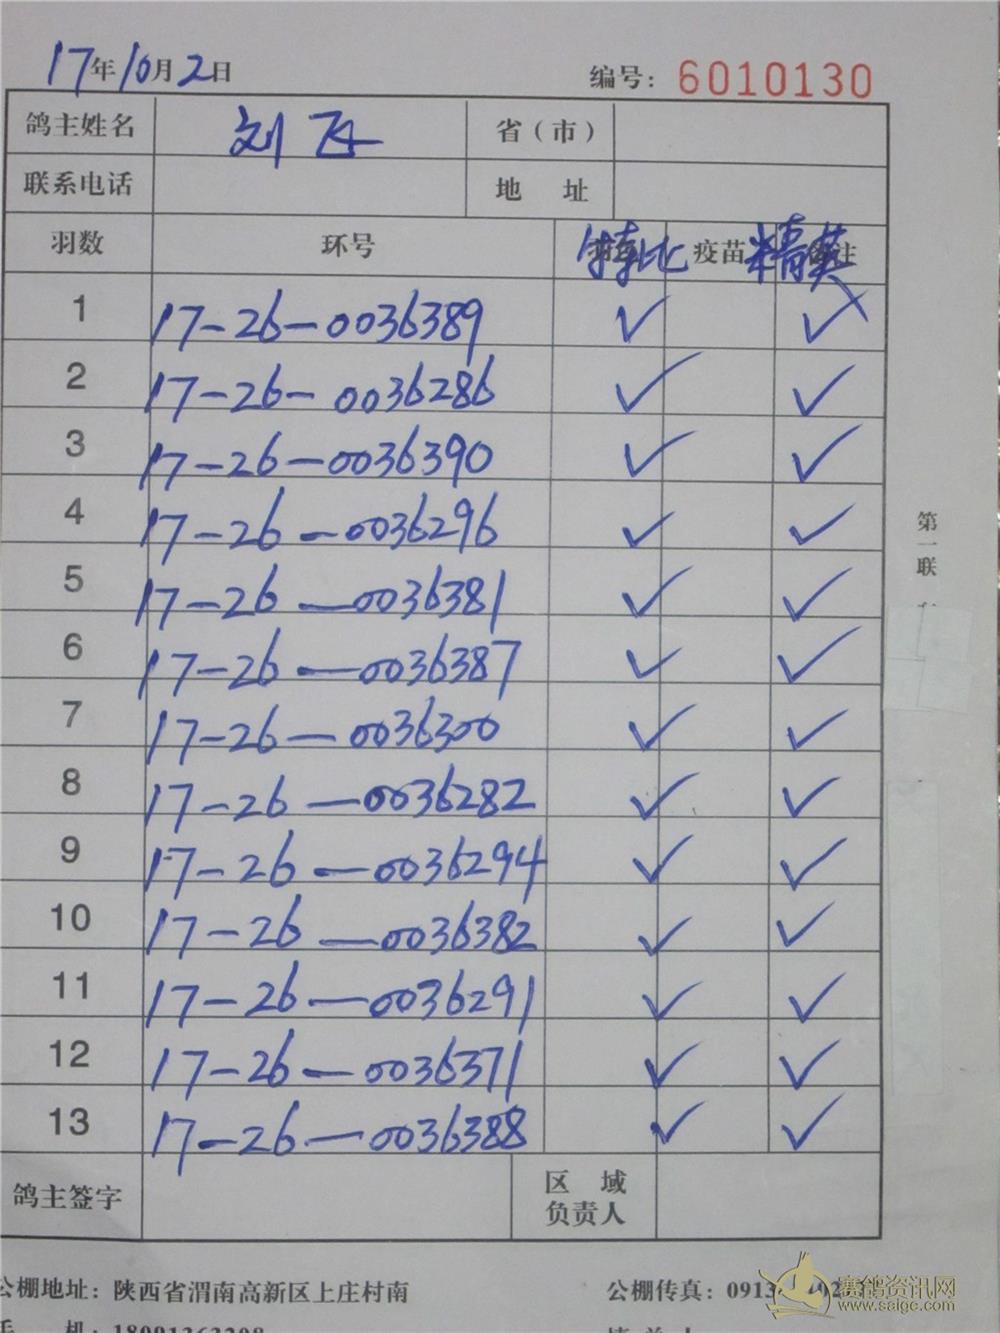 17年10月2日 编号: 6010130
鸽主姓名 刘飞 省(市)
联系电话 地 址
羽数 环号 特比 疫苗 精英 备注
1 17-26-0036389 ✓ ✓
2 17-26-0036286 ✓ ✓
3 17-26-0036390 ✓ ✓
4 17-26-0036296 ✓ ✓
5 17-26-0036381 ✓ ✓
6 17-26-0036387 ✓ ✓
7 17-26-0036300 ✓ ✓
8 17-26-0036282 ✓ ✓
9 17-26-0036294 ✓ ✓
10 17-26-0036382 ✓ ✓
11 17-26-0036291 ✓ ✓
12 17-26-0036371 ✓ ✓
13 17-26-0036388 ✓ ✓
鸽主签字 区 域
负责人
第一联
公棚地址: 陕西省渭南高新区上庄村南 公棚传真: 0913
手 机:
赛鸽资讯网
www.saigc.com